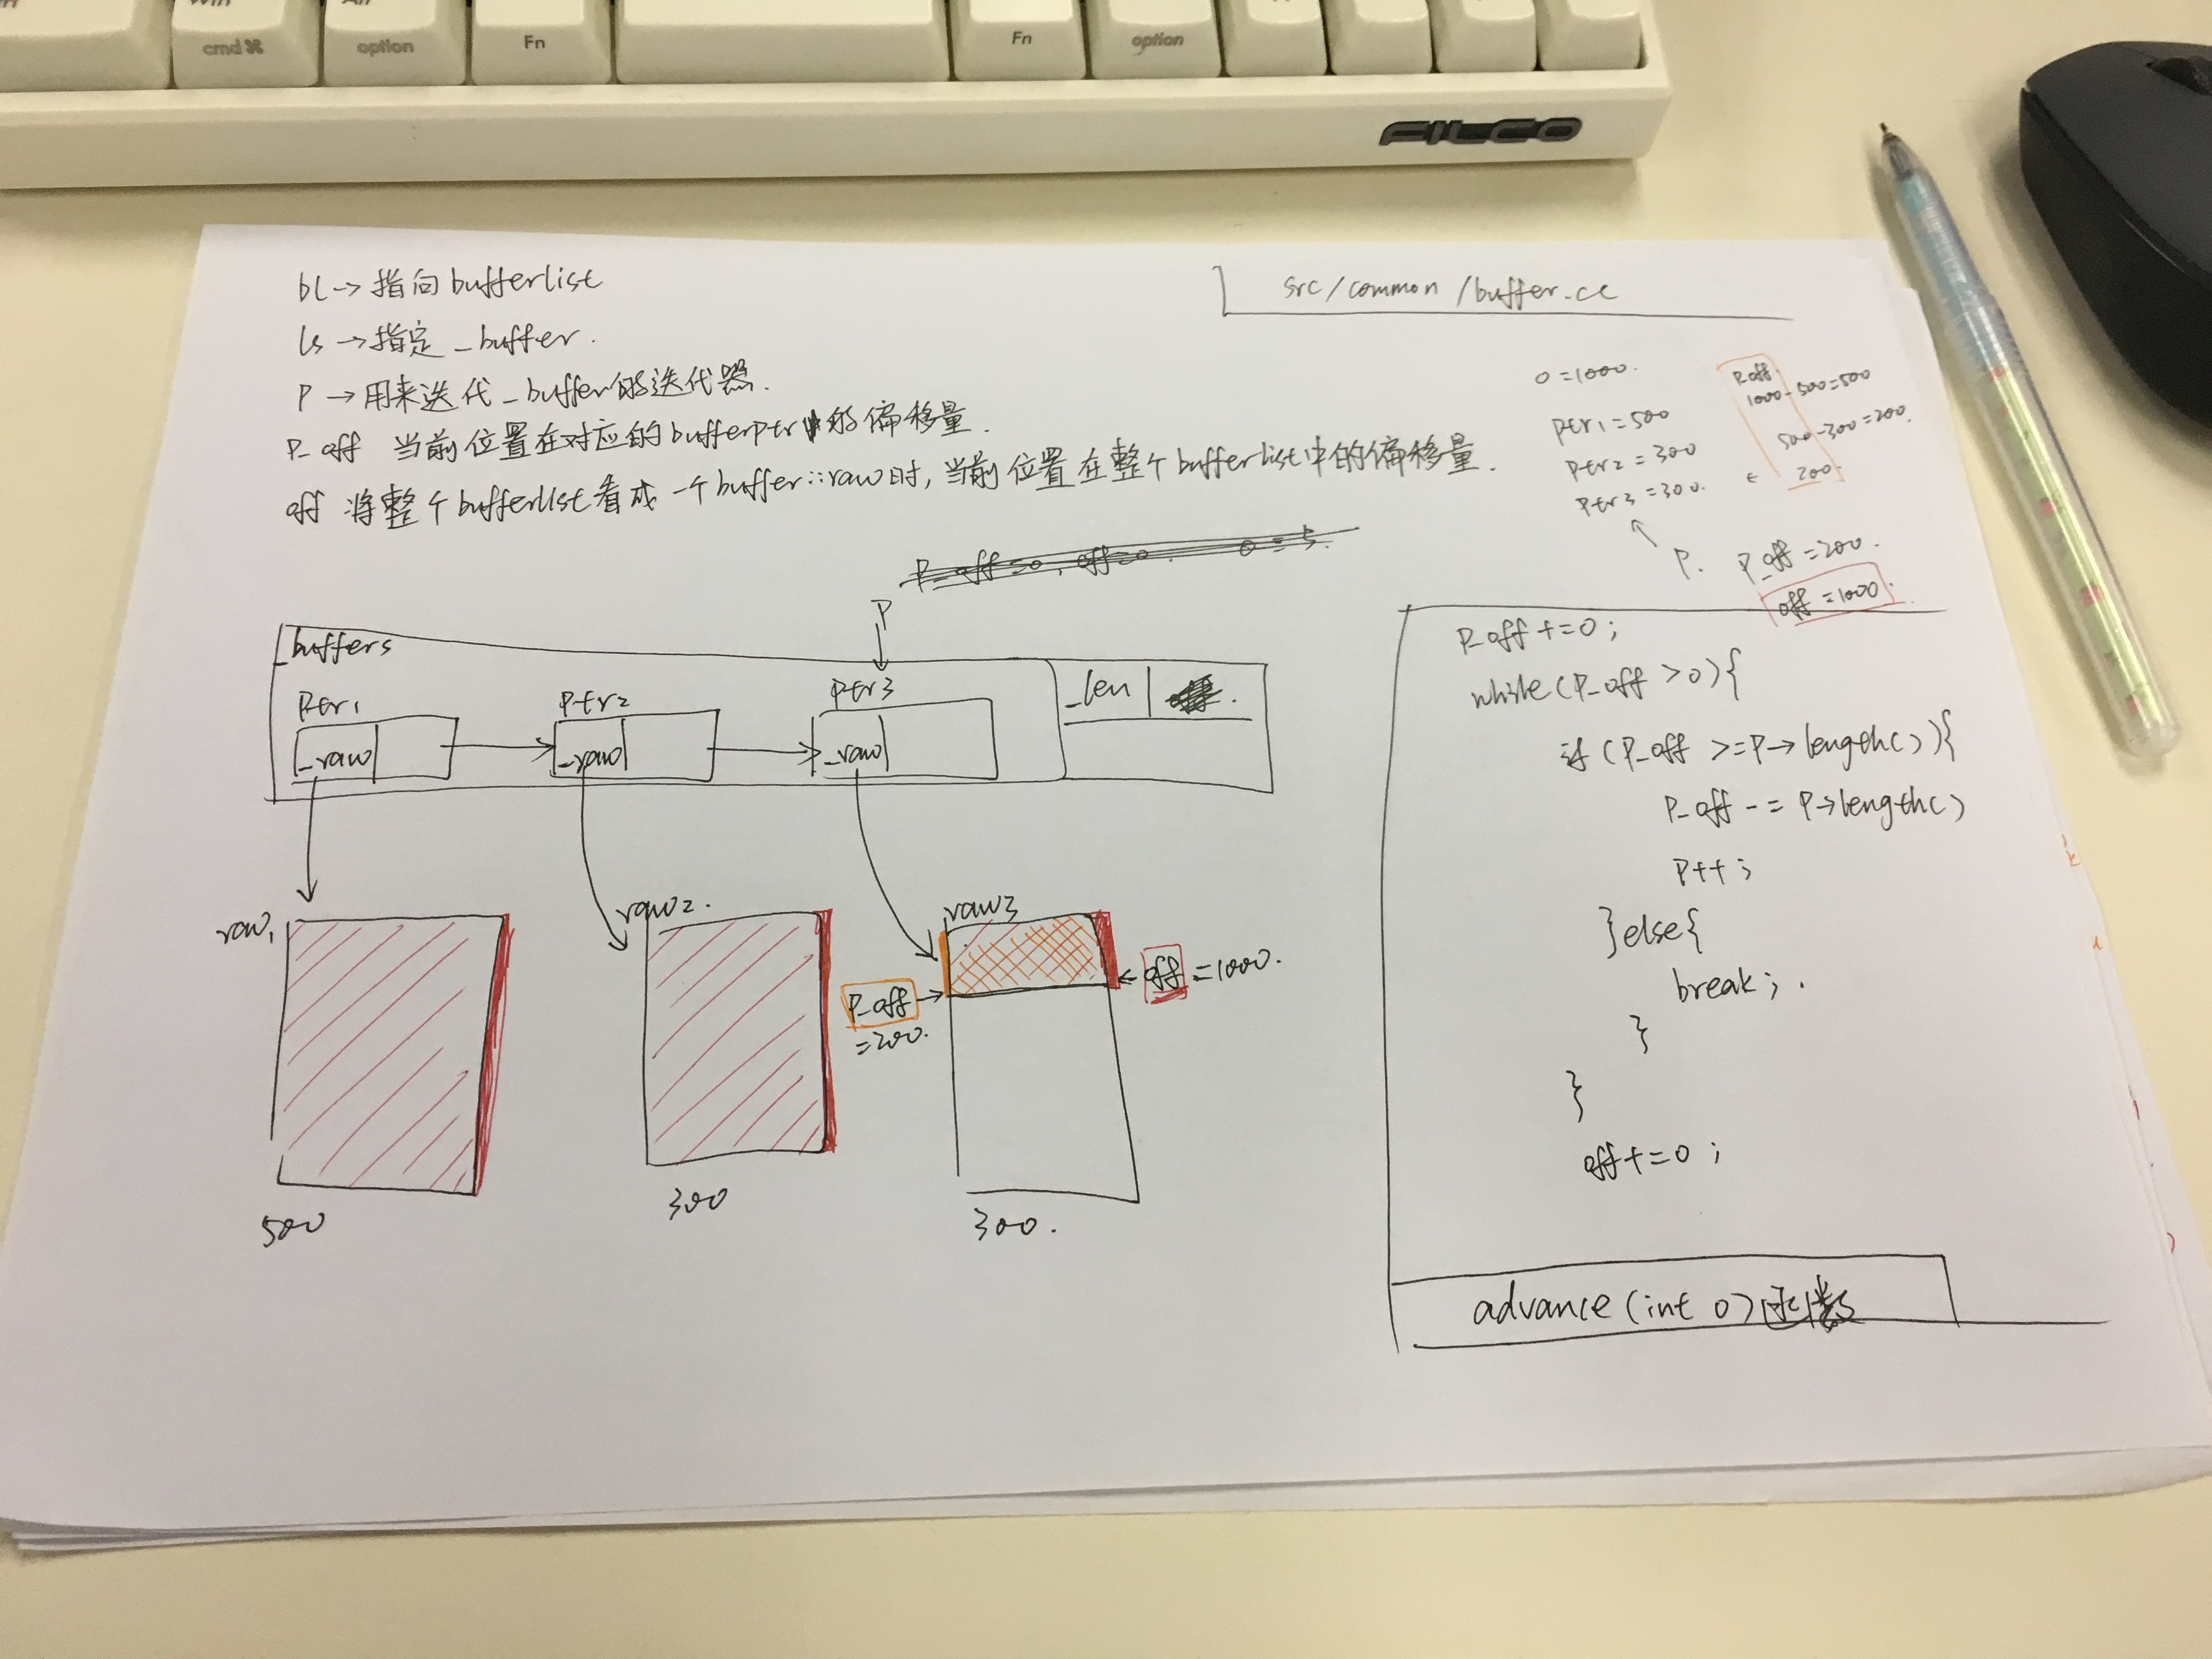 cmd ⌘
option
Fn
Fn
option
FILCO
bl→指向bufferlist
ls→指定_buffer.
P→用来迭代_buffer的迭代器.
P_off 当前位置在对应的bufferptr的偏移量.
off 将整个bufferlist看成一个buffer::raw时,当前位置在整个bufferlist中的偏移量.
src/common/buffer.cc
o=1000.
ptr1=500
ptr2=300
ptr3=300.
P_off.
1000-500=500
500-300=200.
← 200.
P. P_off=200.
off=1000.
P_off=0, off=0. o=5.
P
_buffers
ptr1
ptr2
ptr3
_raw
_raw
_raw
_len
raw1
raw2.
raw3
P_off
=200.
off=1000.
500
300
300.
P_off+=o;
while(P_off>0){
if(P_off>=P→length()){
P_off-=P→length()
P++;
}else{
break;.
}
}
off+=o;
advance(int o)函数